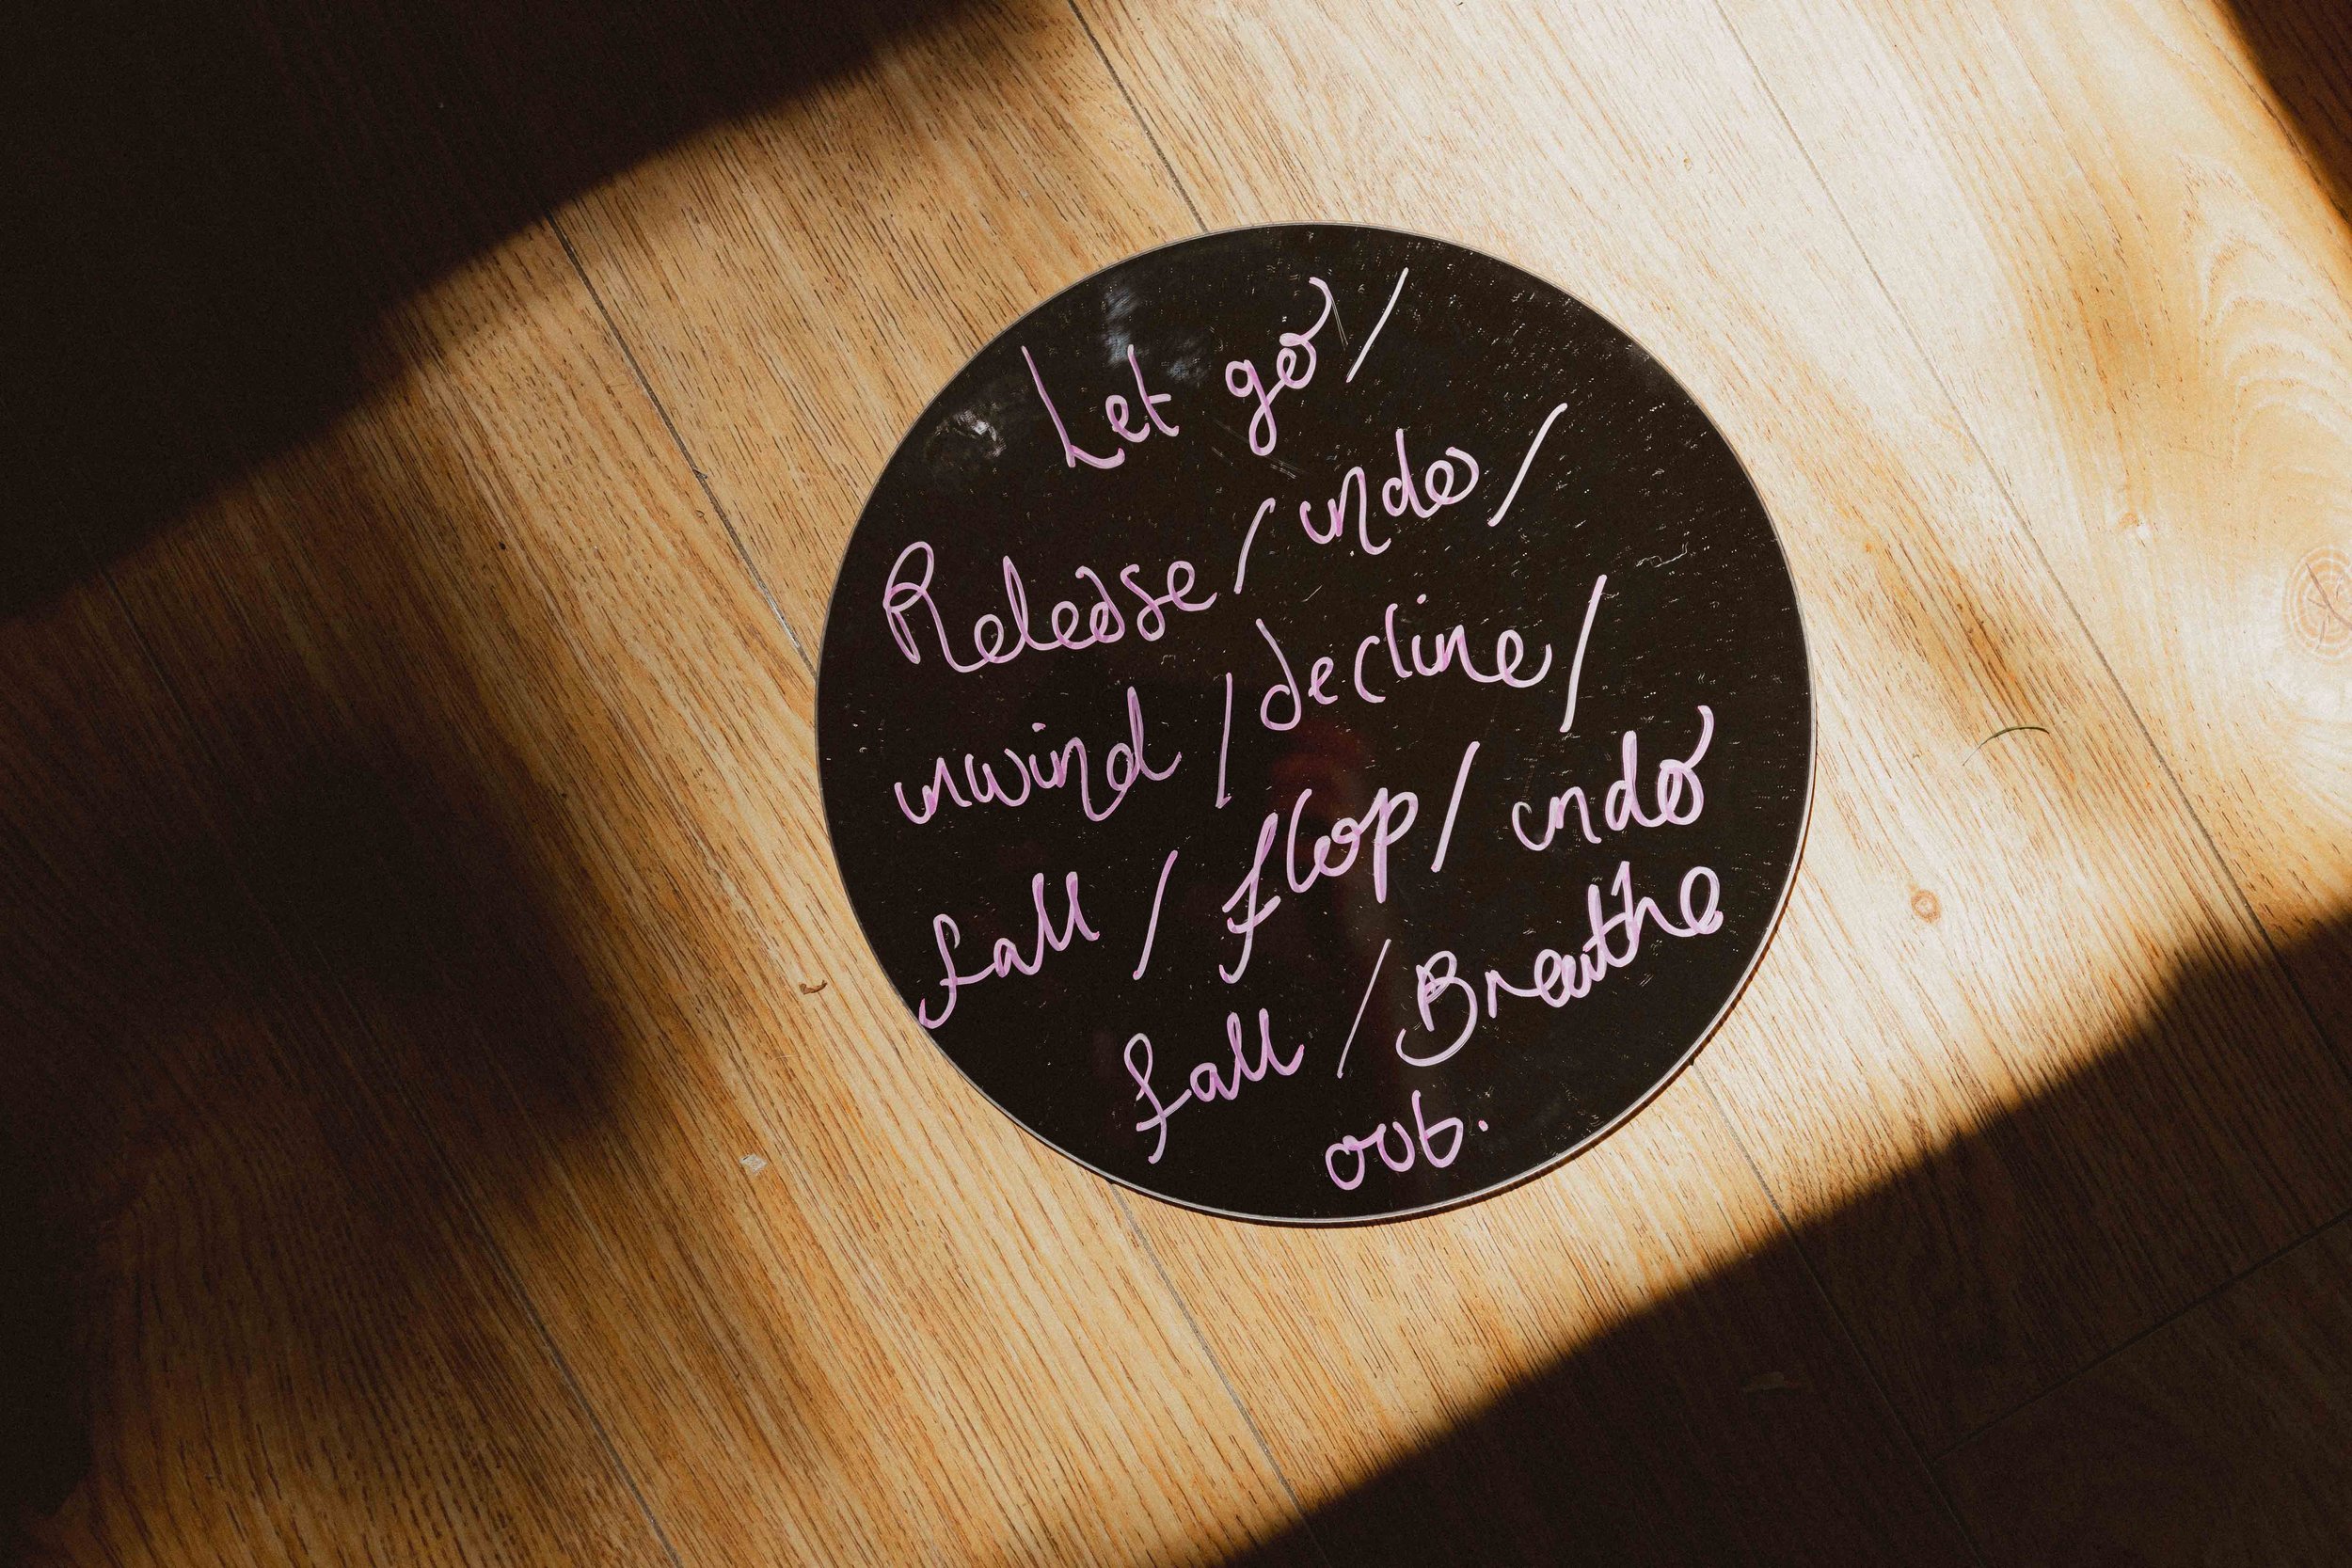 Let go /
Release / undo /
unwind / decline /
fall / flop / undo
fall / Breathe
out.